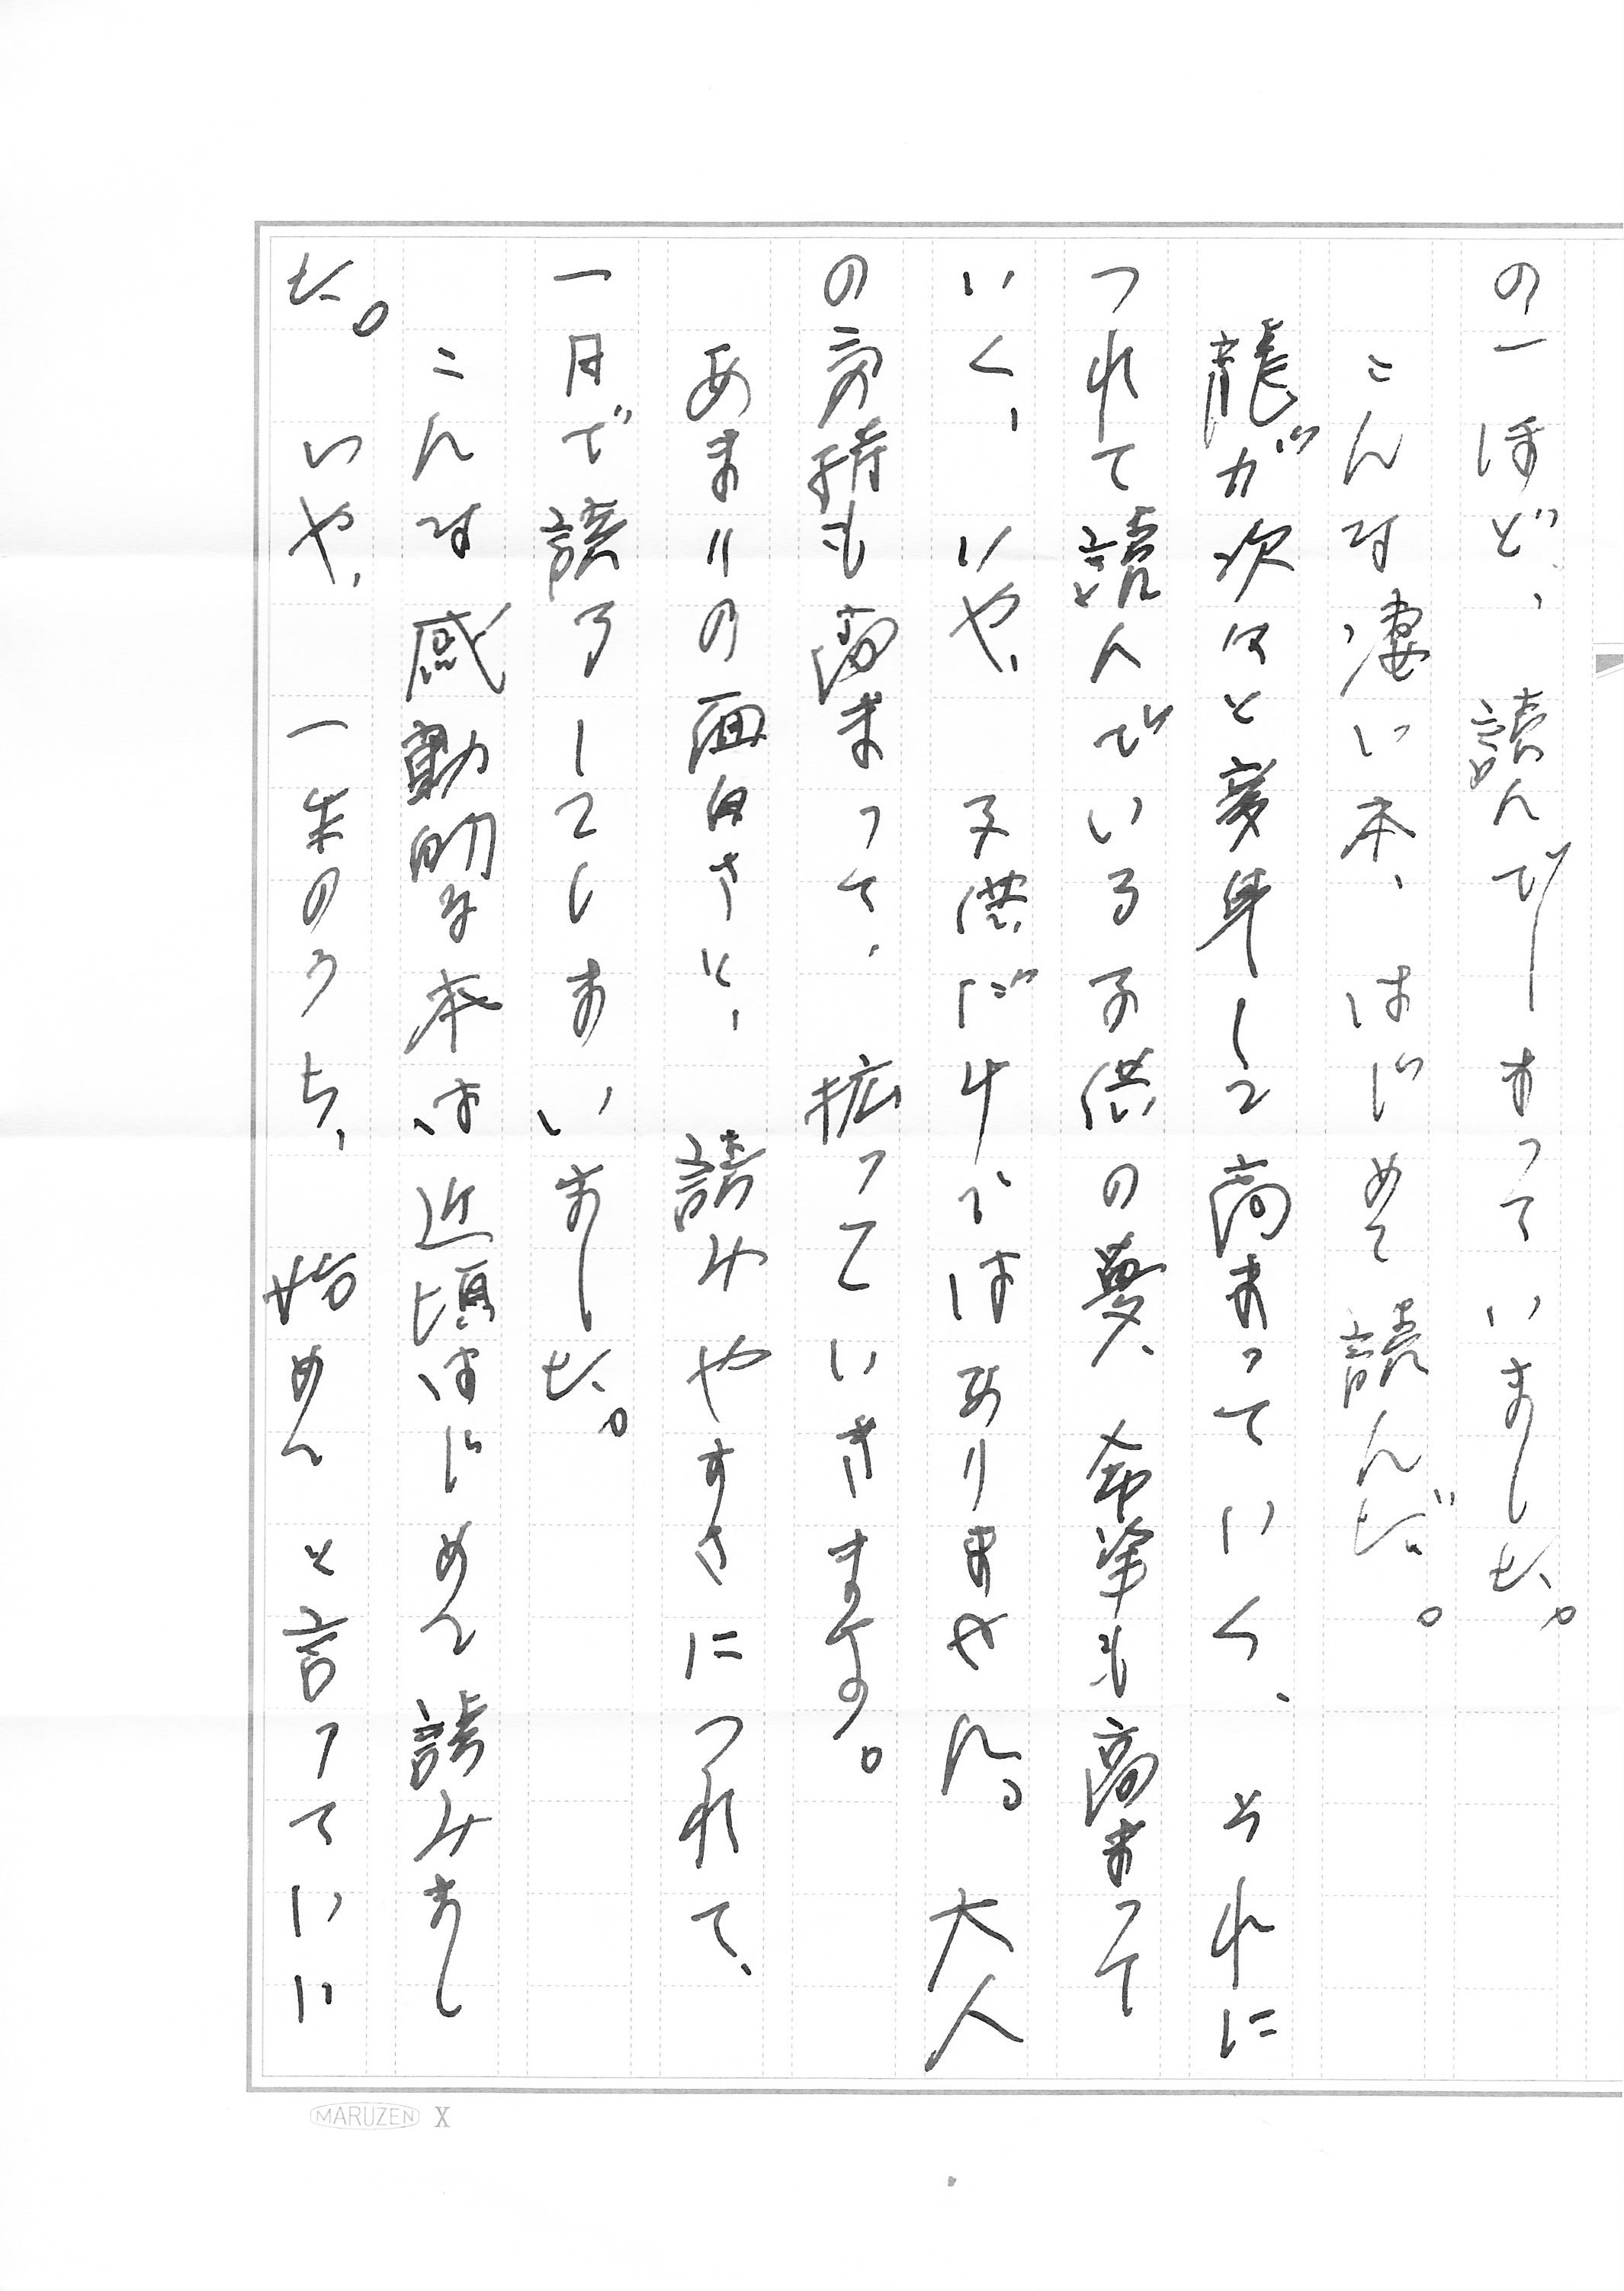 の一ほど、読んでしまっていました。
こんな凄い本、はじめて読んだ。
龍が次々と変身して高まっていく、それに
つれて読んでいる子供の夢、希望も高まって
いく、いや、子供だけではありません。大人
の気持も高まって、拡っていきます。
あまりの面白さに、読みやすさにつれて、
一日で読了してしまいました。
こんな感動的な本は近頃はじめて読みまし
た。いや、一生のうち、始めてと言っていい
MARUZEN X